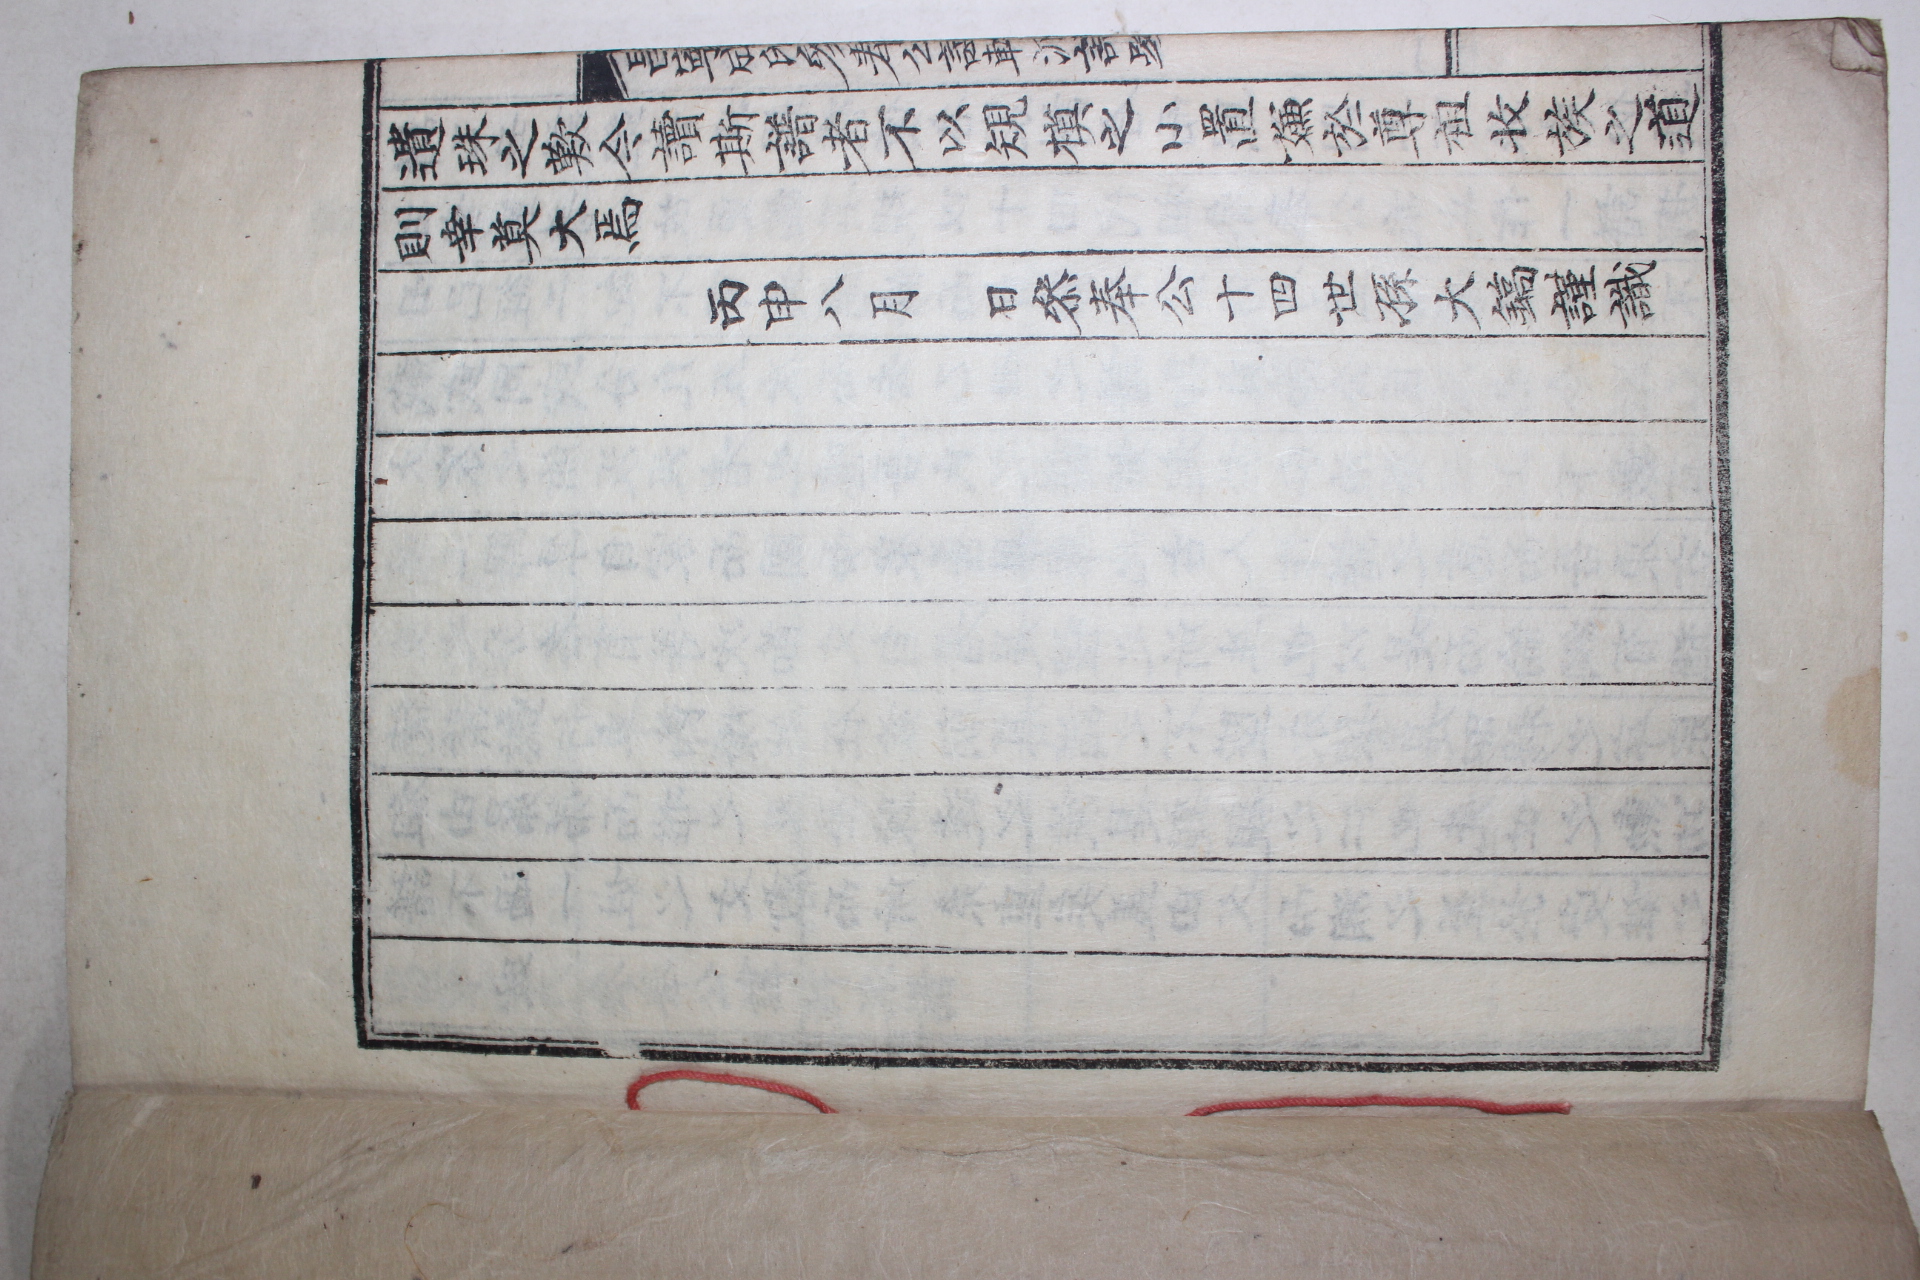 遺珠之歎今讀斯譜者不以規模之小置嫌於尊祖收族之道
則幸莫大焉
丙申八月 日叅奉公十四世孫大鎬謹識